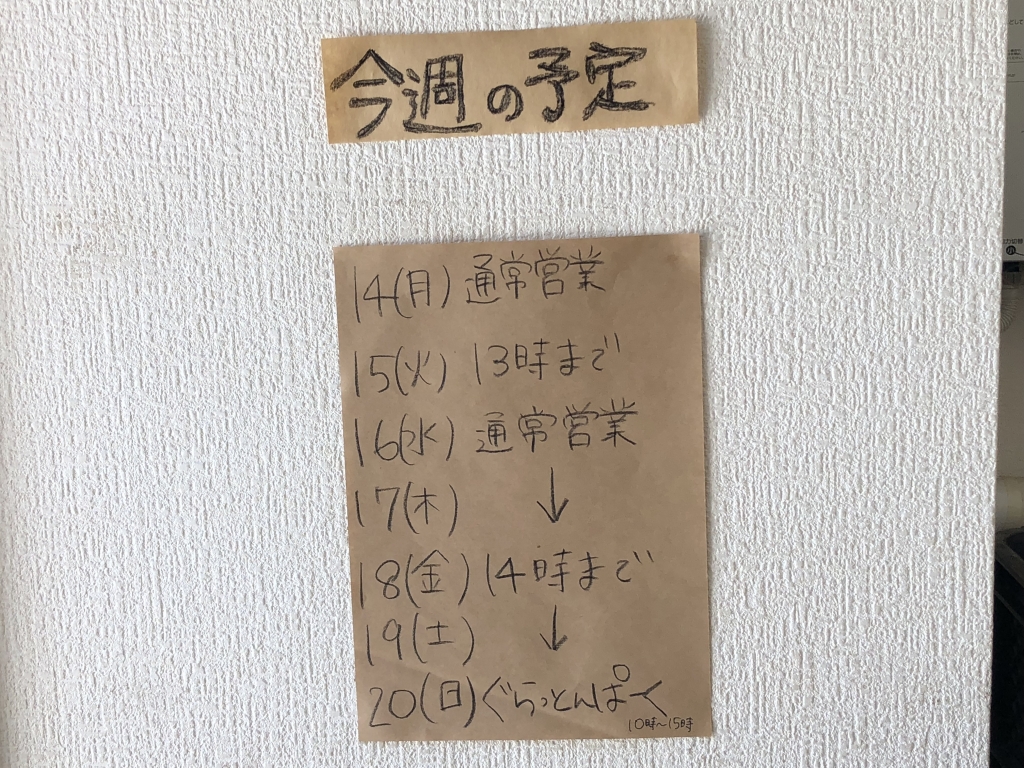 今週の予定
14(月) 通常営業
15(火) 13時まで
16(水) 通常営業
17(木) ↓
18(金) 14時まで
19(土) ↓
20(日) ぐらっとんぱーく
10時〜15時